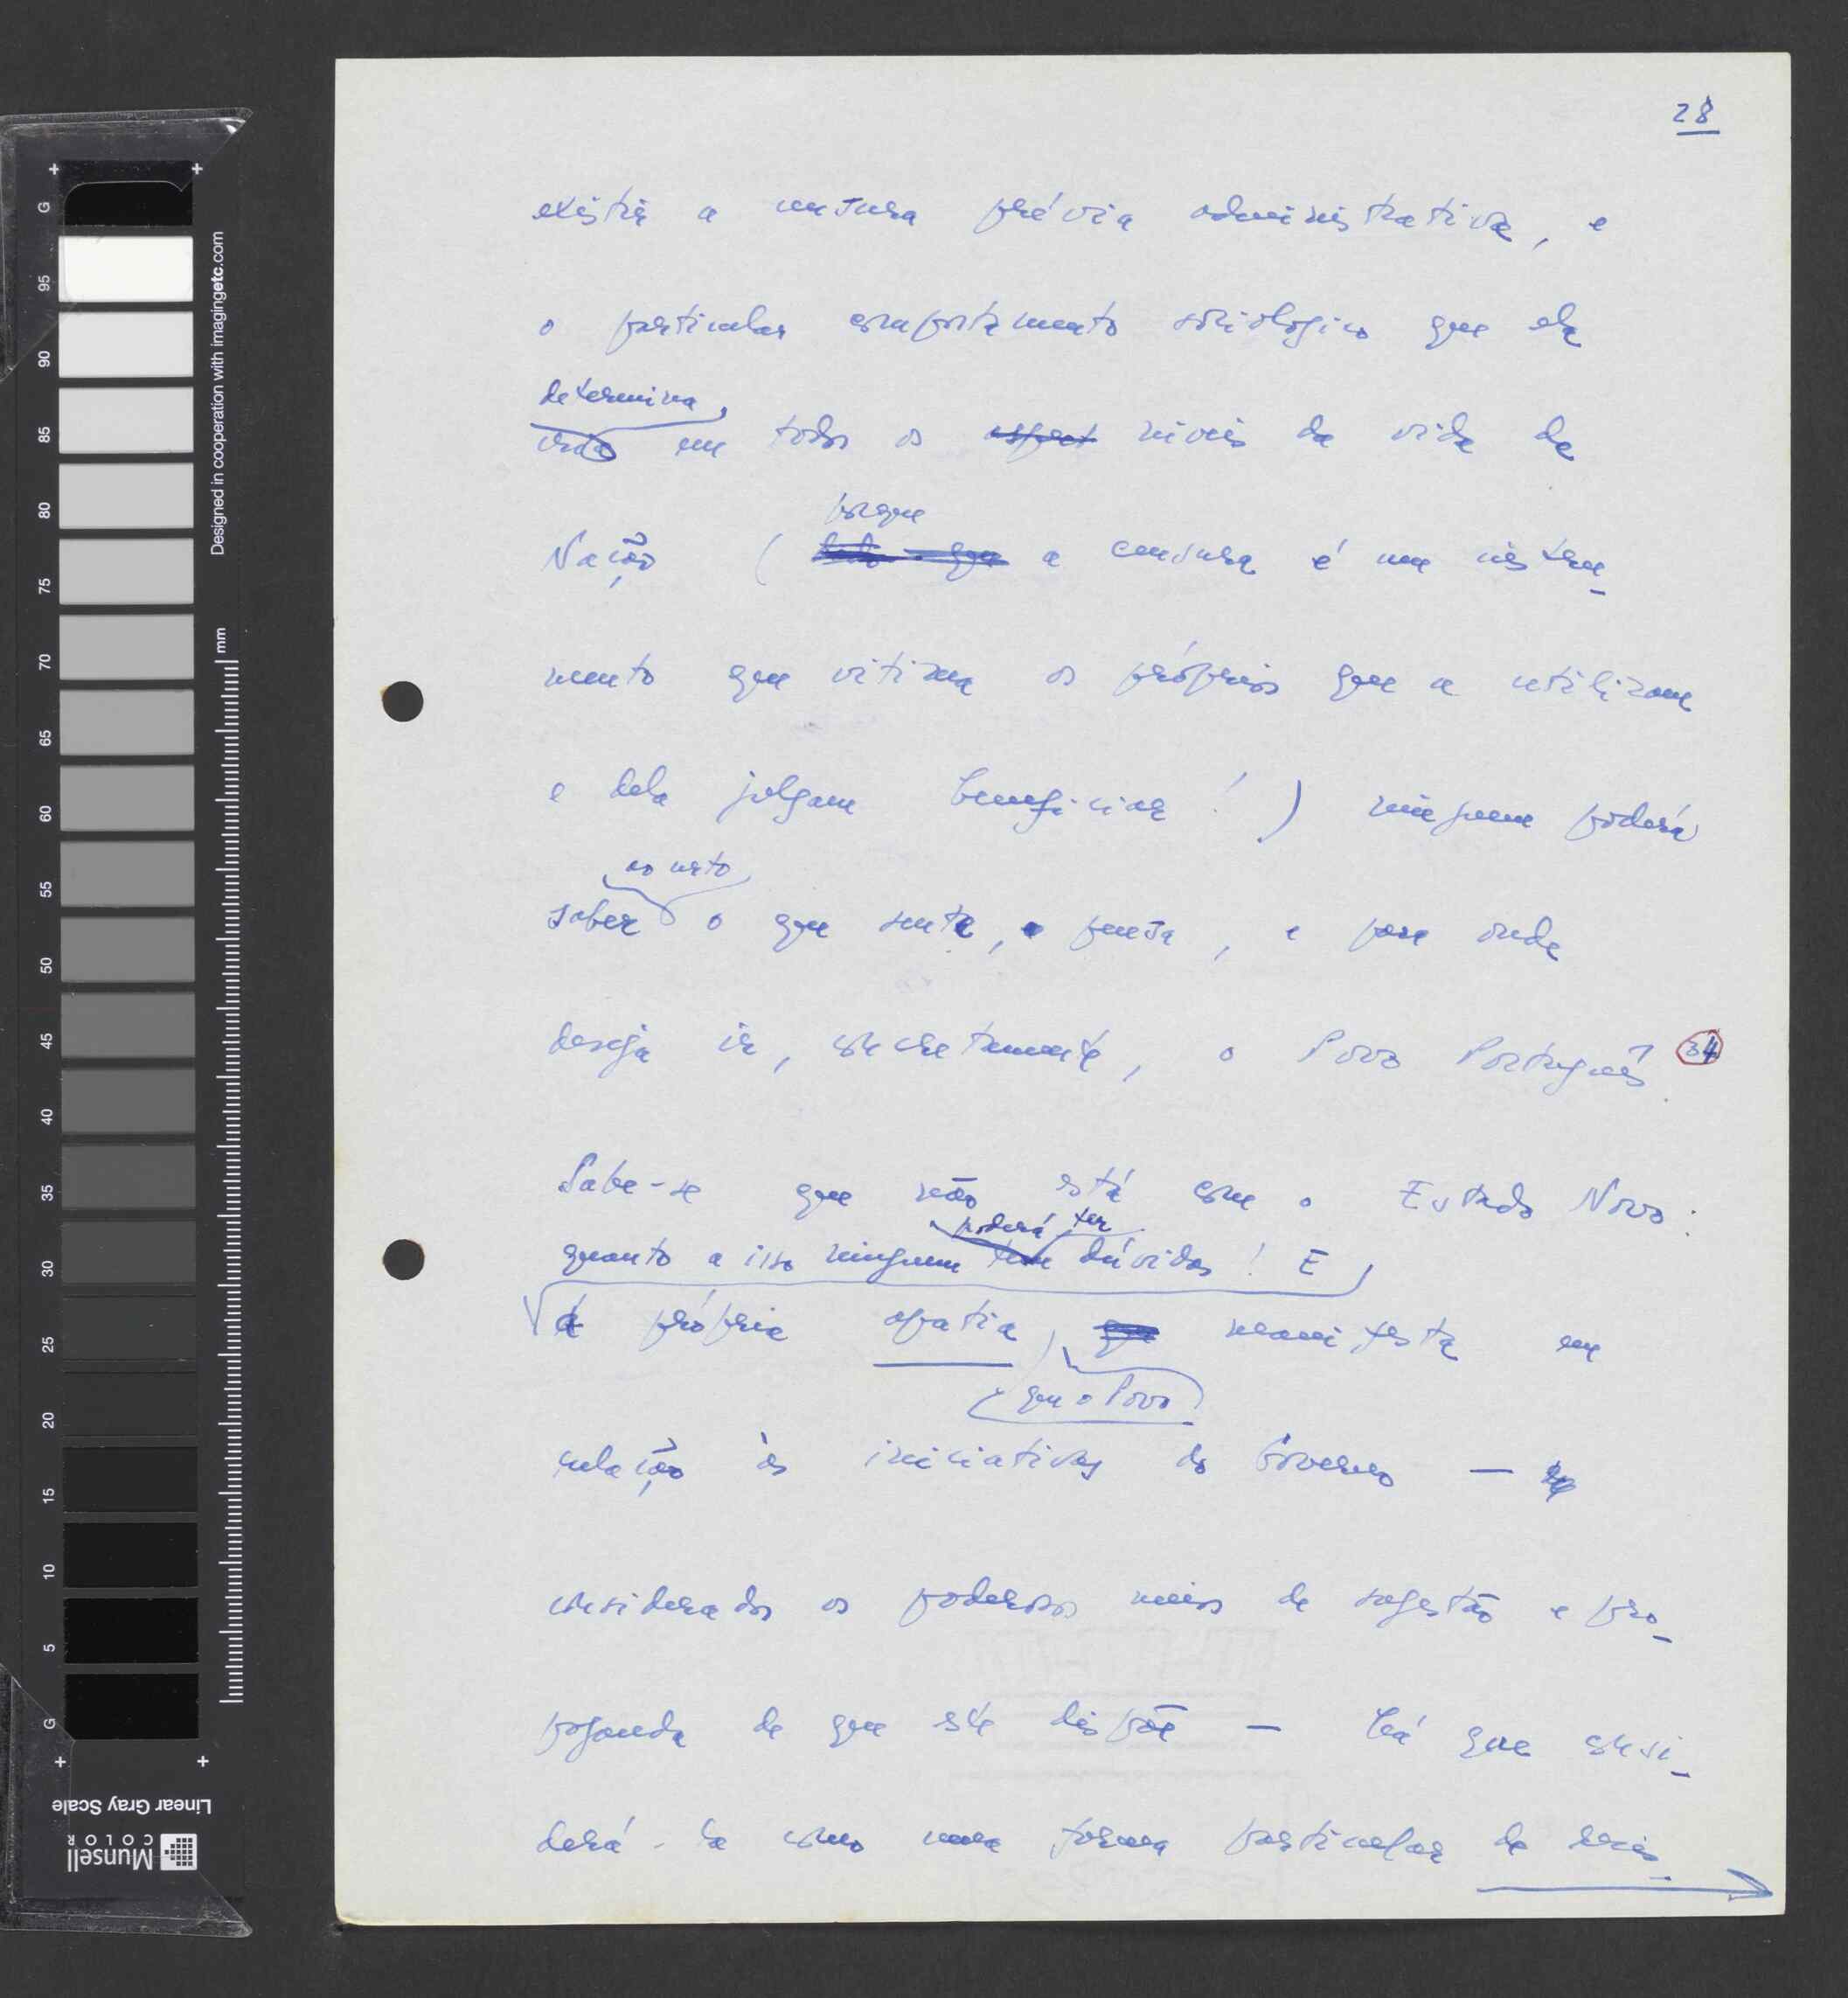 28
existir a censura prévia administrativa, e
o particular comportamento sociológico que ela
determina,
cria em todos os aspect níveis da vida da
porque
Nação ( dado que a censura é um instru-
mento que vitima os próprios que a utilizam
e dela julgam beneficiar! ) ninguem poderá
ao certo
saber o que sente, e pensa, e para onde
deseja ir, concretamente, o Povo Português. 34
Sabe-se que não está com o Estado Novo:
poderá ter
quanto a isso ninguem tem dúvidas! E
a própria apatia, que manifesta em
que o Povo
relação às iniciativas do Governo —
considerados os poderosos meios de sugestão e pro-
paganda de que este dispõe — há que consi-
derá-la como uma forma particular de
G 95 90 85 80 75 70 65 60 55 50 45 40 35 30 25 20 15 10 5 G
Designed in cooperation with imagingetc.com
mm
Linear Gray Scale
Munsell
COLOR